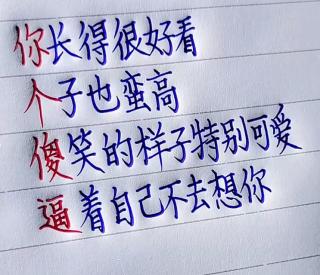 你长得很好看
个子也蛮高
傻笑的样子特别可爱
逼着自己不去想你